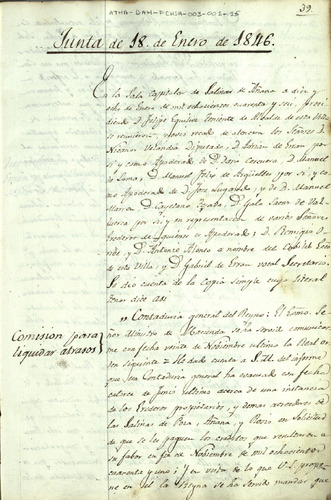 ATHA-DAH-FCHSA-003-002-15
39.
Junta de 18. de Enero de 1846.
En la Sala Capitular de Salinas de Añana a diez y
ocho de Enero de mil ochocientos cuarenta y seis: Presi-
diendo D. Felipe Teniente de Alcalde de esta Villa
se reunieron, previo recado de atencion los Señores D.
Diputado, D. Adrian de Eran por
si y como Apoderado de D. D. Manuel
de D. Manuel Felix de Argüelles por si, y co-
mo Apoderado de D. Jose y de D. Manuel
D. Cayetano D. Galo Saenz de Val-
por si, y en representacion de varios Señores
herederos de D.
D. Antonio Alonso a nombre del Cabildo
de esta Villa; y D. Gabriel de Eran vocal Secretario.
Se dio cuenta de la Copia simple cuyo literal
tenor dice asi
"Contaduria general del Reyno: El Exmo. Se-
ñor Ministro de Hacienda se ha servido comunicar-
me con fecha veinte de Noviembre ultimo la Real or-
den siguiente = He dado cuenta a S.M. del informe
que esa Contaduria general ha evacuado con fecha
catorce de Junio ultimo acerca de una instancia
de los Erederos propietarios, y demas acreedores de
las Salinas de Poza, Añana, y Rosio en solicitud
de que se les paguen los creditos que resultaron a
su favor en fin de Noviembre de mil ochocientos
cuarenta y uno; y en vista de lo que V.S. propo-
ne en el la Reyna se ha servido mandar que
Comision para
liquidar atrasos